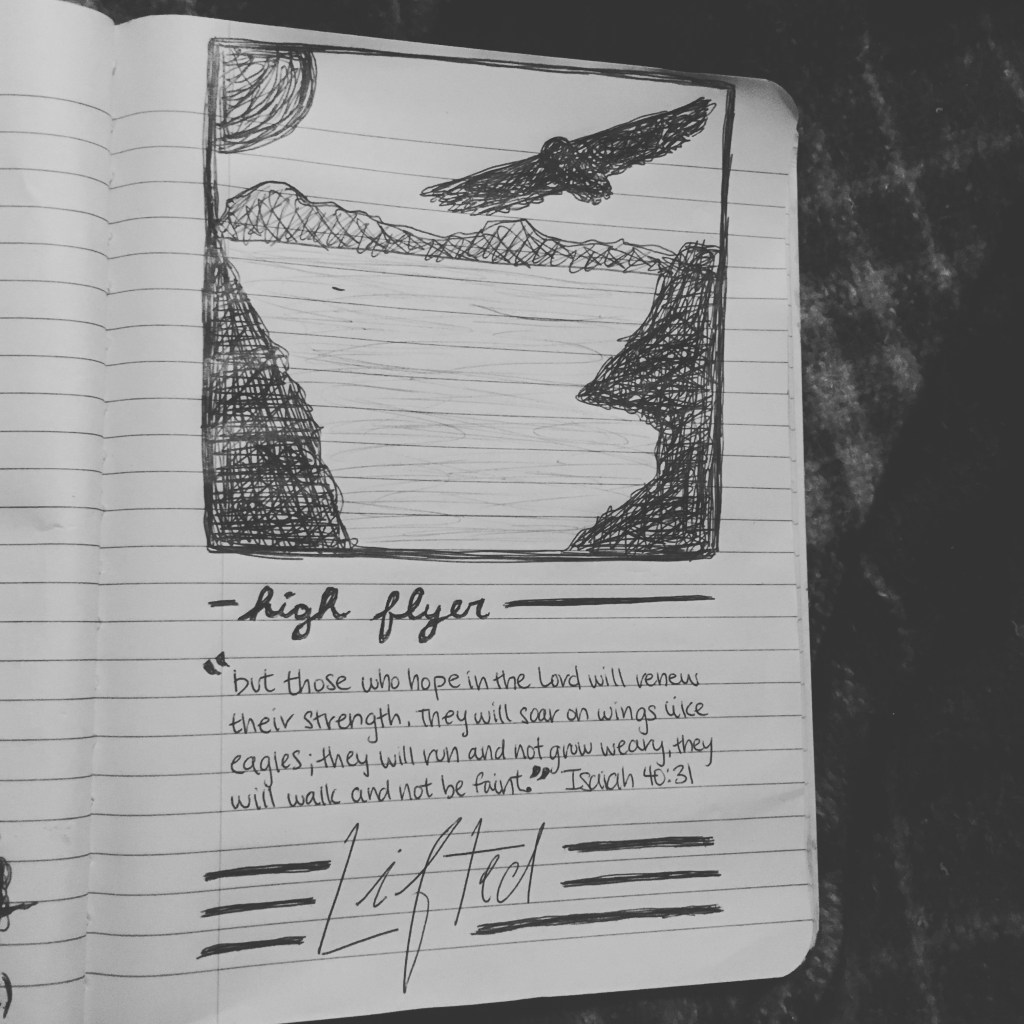 - high flyer —
"but those who hope in the Lord will renew
their strength. They will soar on wings like
eagles; they will run and not grow weary, they
will walk and not be faint." Isaiah 40:31
Lifted